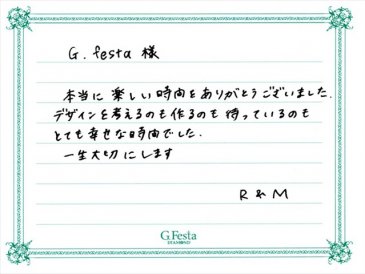 G. festa 様
本当に楽しい時間をありがとうございました.
デザインを考えるのも作るのも待っているのも
とても幸せな時間でした.
一生大切にします
R & M
G.Festa
DIAMOND